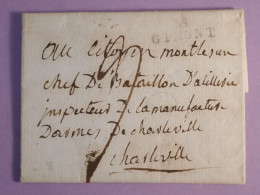 GIMONT
Au Citoyen montlezun
chef De Bataillon D'atillerie
inspecteur De la manufacture
Darmes De charleville
charleville